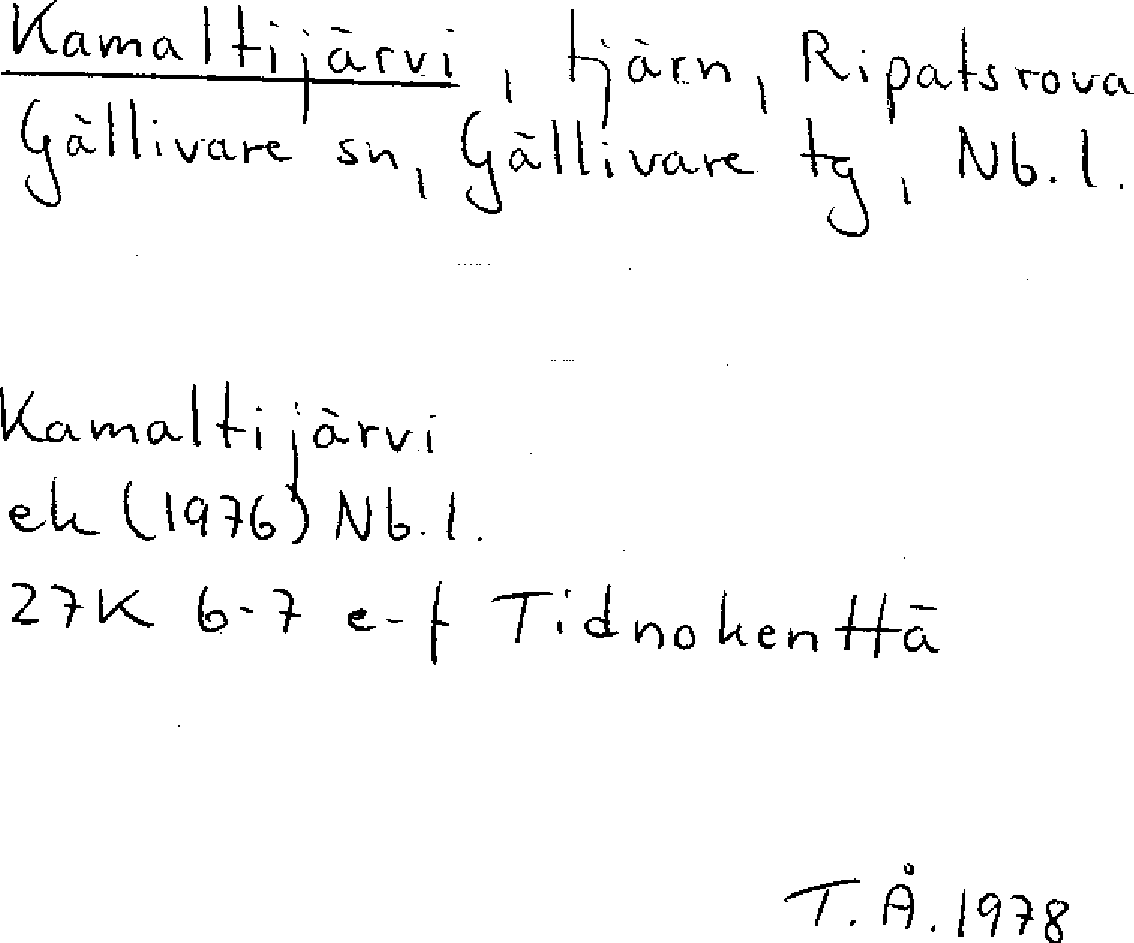 Kamaltijärvi, tjärn, Ripatsrova
Gällivare sn, Gällivare tg, Nb. l.
Kamaltijärvi
ek (1976) Nb. l.
27K 6-7 e-f Tidnokenttä
T. Å. 1978